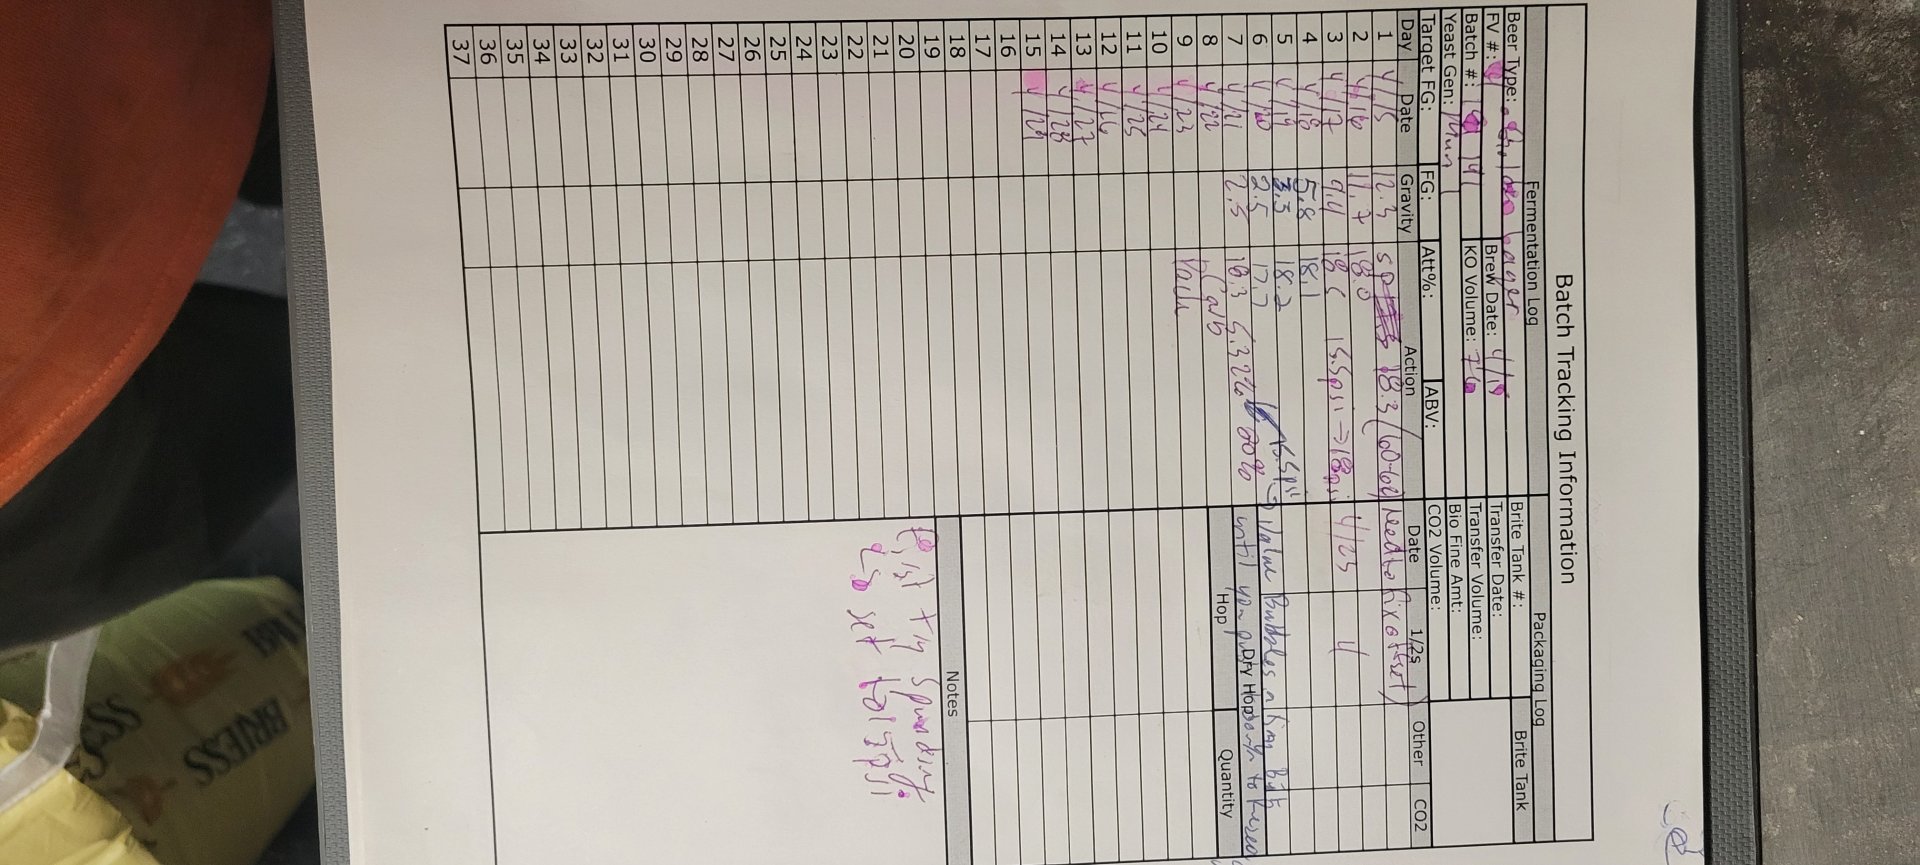 Batch Tracking Information
Fermentation Log
Packaging Log
Beer Type: Lager
Brite Tank #:
Brite Tank
FV #:
Brew Date:
Transfer Date:
Batch #:
KO Volume:
Transfer Volume:
Yeast Gen:
Bio Fine Amt:
Target FG: FG: Att%: ABV:
CO2 Volume:
Day Date Gravity Action
Date 1/2s Other CO2
1 4/15 12.3 18.3 (60-62) need to fix offset)
2 4/16 11.7 18.0
3 4/17 9.4 18.5 15.5psi → 18psi 4/23 4
4 4/18 5.8 18.1
5 4/19 3.3 18.2 15.5psi → Valve Bubbles a tiny bit
6 4/20 2.5 17.7 until you
7 4/21 2.5 18.3 5.32% 80%
Dry Hop
Hop Quantity
8 4/22
9 4/23
10 4/24
11 4/25
12 4/26
13 4/27
14 4/28
15 4/29
16
17
18
Notes
19
First try spunding
20
21
set to 15psi
22
23
24
25
26
27
28
29
30
31
32
33
34
35
36
37
BRIESS